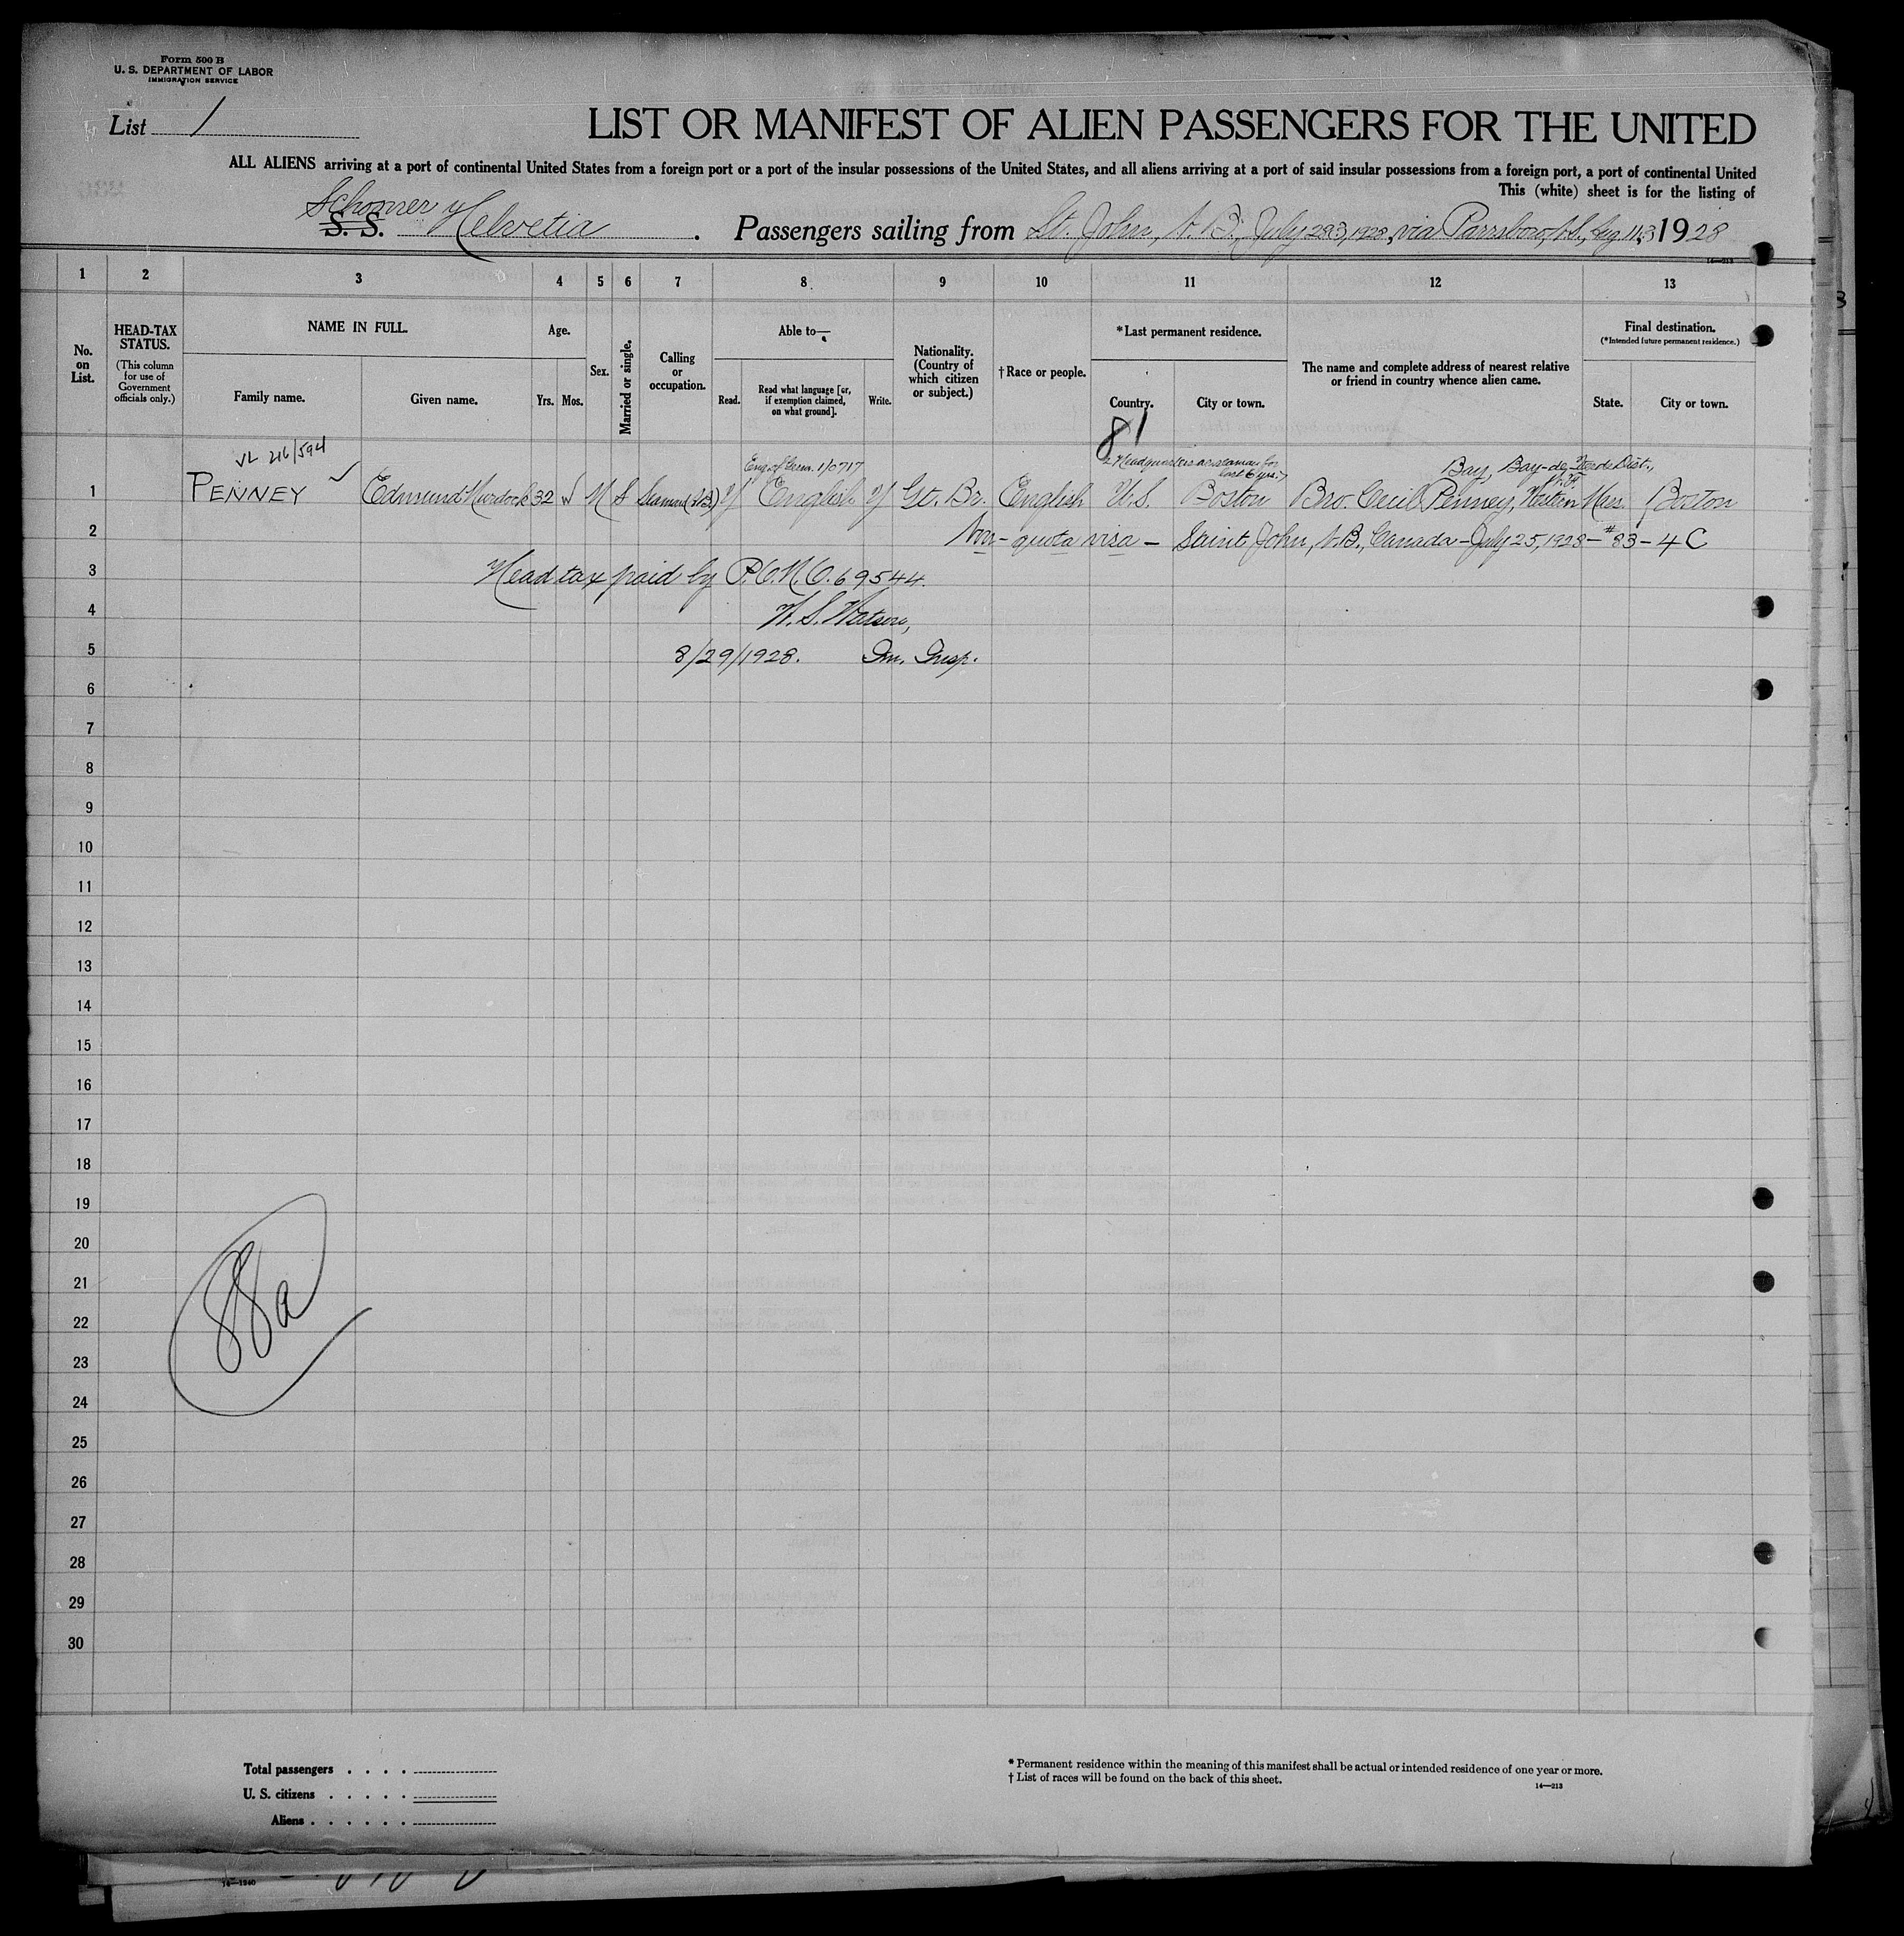 Form 500 B
U. S. DEPARTMENT OF LABOR
IMMIGRATION SERVICE
List 1
LIST OR MANIFEST OF ALIEN PASSENGERS FOR THE UNITED
ALL ALIENS arriving at a port of continental United States from a foreign port or a port of the insular possessions of the United States, and all aliens arriving at a port of said insular possessions from a foreign port, a port of continental United
This (white) sheet is for the listing of
Schooner
S. S. Helvetia. Passengers sailing from St. John, N. B., July 28, 1928, via Parrsboro, N.S., Aug. 11, 1928
14—213
1 2 3 4 5 6 7 8 9 10 11 12 13
No. on List.
HEAD-TAX STATUS.
(This column for use of Government officials only.)
NAME IN FULL.
Family name.
Given name.
Age.
Yrs. Mos.
Sex.
Married or single.
Calling or occupation.
Able to—
Read.
Read what language [or, if exemption claimed, on what ground].
Write.
Nationality. (Country of which citizen or subject.)
† Race or people.
* Last permanent residence.
Country.
City or town.
The name and complete address of nearest relative or friend in country whence alien came.
Final destination.
(* Intended future permanent residence.)
State.
City or town.
81
VL 216/594
Headquarters as seaman for
last 6 yrs.
Bay, Bay-de-Verde Dist.,
1 PENNEY Edmund Murdock 32 M S Seaman Y English Y Gt. Br. English U.S. Boston Bro. Cecil Penney, Western Mas. Boston
2 Non-quota visa — Saint John, N.B., Canada — July 25, 1928 — #83 — 4 C
3 Head tax paid by P.O.M.O. 69544.
4 W. S. Watson,
5 8/29/1928. Im. Insp.
6
7
8
9
10
11
12
13
14
15
16
17
18
19
20
21
22
23
24
25
26
27
28
29
30
88a
Total passengers . . . .
U. S. citizens . . . . .
Aliens . . . . . .
* Permanent residence within the meaning of this manifest shall be actual or intended residence of one year or more.
† List of races will be found on the back of this sheet.
14—213
14—1240